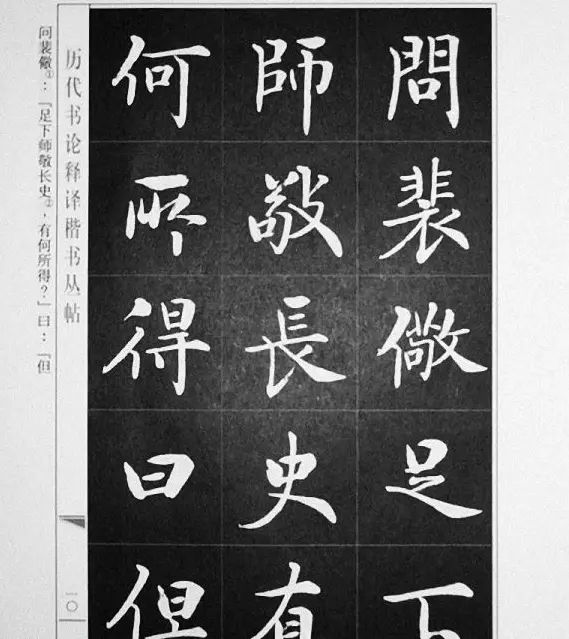 問裴儆足下
師敬長史有
何所得曰但
历代书论释译楷书丛帖
一〇
问裴儆①：「足下师敬长史②，有何所得？」曰：「但